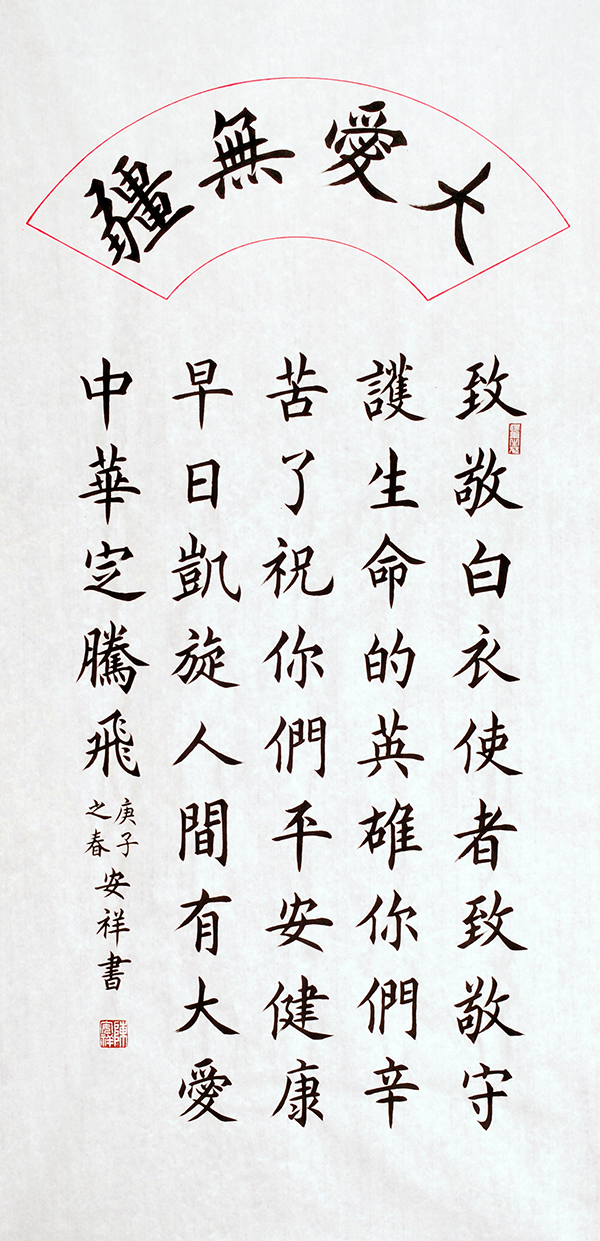 大愛無疆
致敬白衣使者致敬守
護生命的英雄你們辛
苦了祝你們平安健康
早日凱旋人間有大愛
中華定騰飛
庚子
之春
安祥書